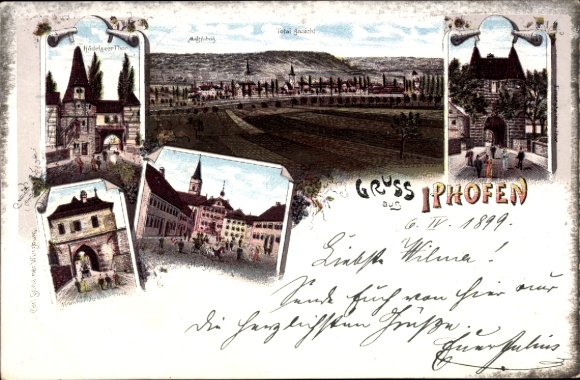 Rödelseer Thor
Total Ansicht
Gruss
aus
IPHOFEN
6. IV. 1899.
Liebste Wilma!
Sende Euch von hier nur
die herzlichsten Grüße.
Euer Julius